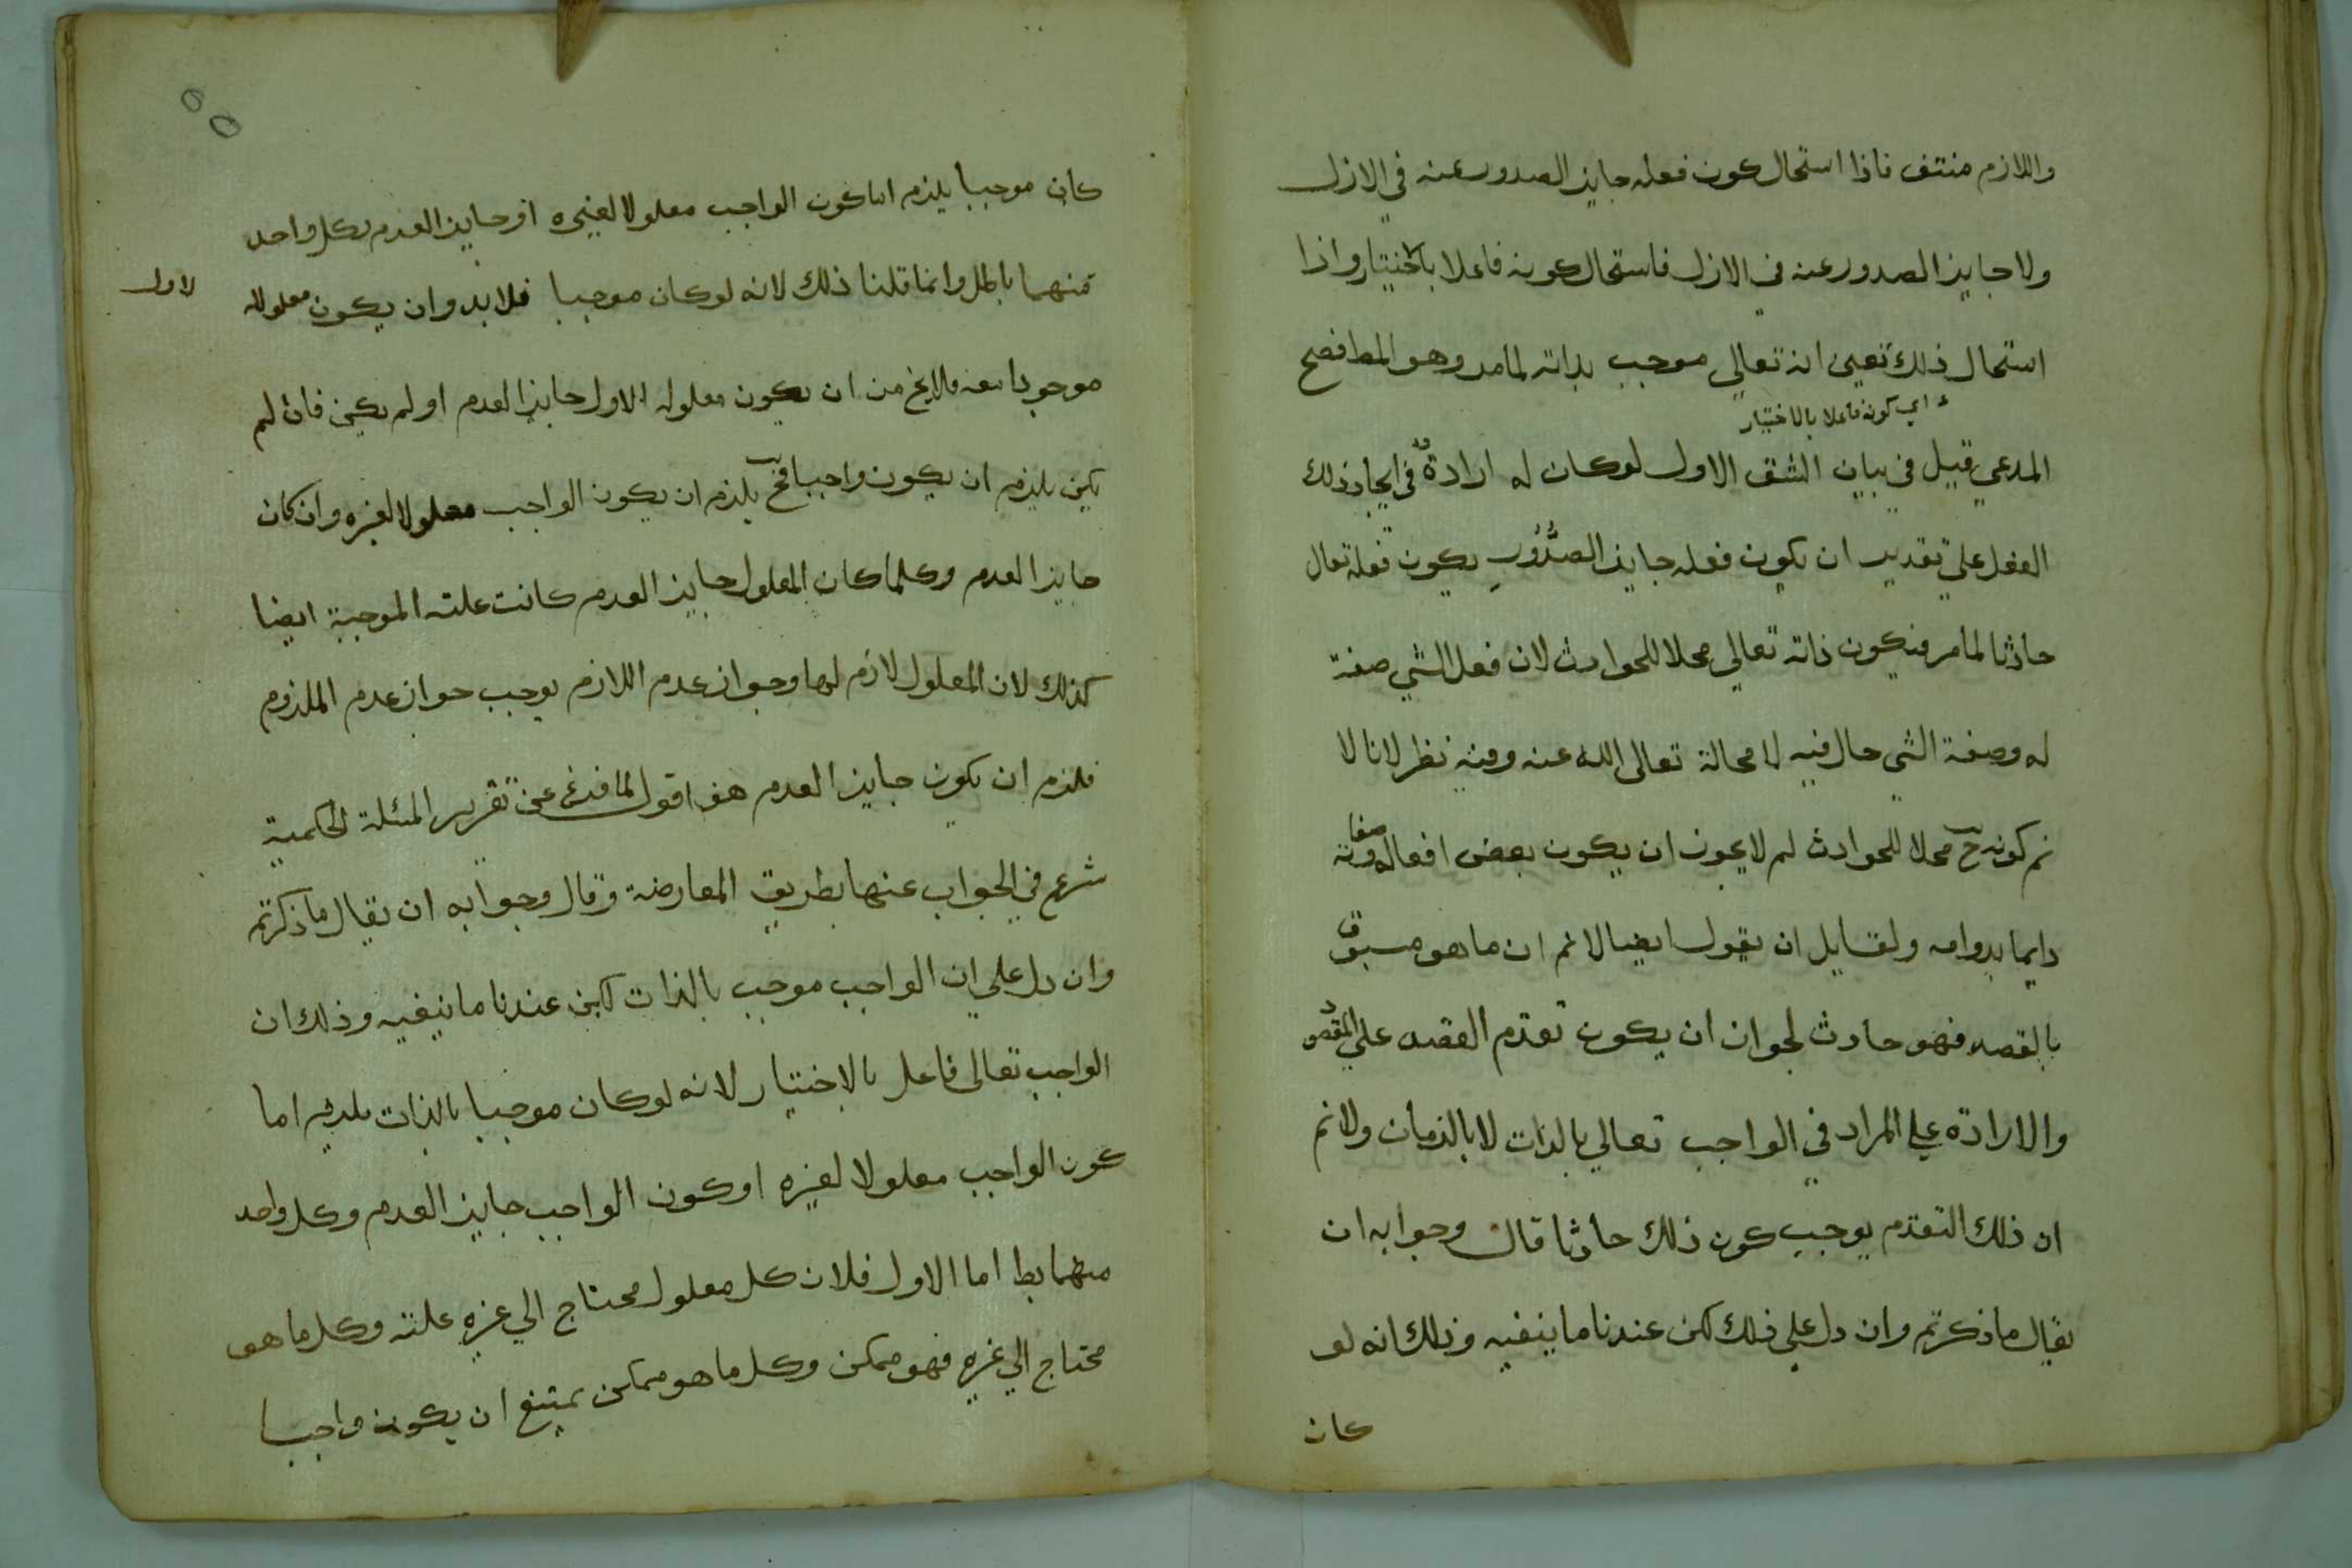 واللازم منتف فاذا استحال كون فعله جايز الصدور عنه في الازل
ولا جايز الصدور عنه في الازل فاستحال كونه فاعلا بالاختيار واذا
استحال ذلك تعين انه تعالي موجب بذاته لما مر وهو المط فصح
اي كونه فاعلا بالاختيار
المدعي قيل في بيان الشق الاول لو كان له ارادة في ايجاد ذلك
الفعل علي تقدير ان يكون فعله جايز الصدور يكون فعله تعال
حادثا لما مر فيكون ذاته تعالي محلا للحوادث لان فعل الشي صفة
له وصفة الشي حال فيه لا محالة تعالي الله عنه وفيه نظر لانا لا
نم كونه ح محلا للحوادث لم لا يجوز ان يكون بعض افعاله وصفاته
دايما بدوامه ولقايل ان يقول ايضا لا نم ان ما هو مسبوق
بالقصد فهو حادث لجواز ان يكون تقدم القصد علي المقصود
والارادة علي المراد في الواجب تعالي بالذات لا بالزمان ولا نم
ان ذلك التقدم يوجب كون ذلك حادثا قال وجوابه ان
يقال ما ذكرتم وان دل علي ذلك لكن عندنا ما ينفيه وذلك انه لو
كان
كان موجبا يلزم اما كون الواجب معلولا لغيره او جايز العدم وكل واحد
منهما باطل وانما قلنا ذلك لانه لو كان موجبا فلا بد وان يكون معلوله
الاول
موجودا معه فلا يخ من ان يكون معلوله الاول جايز العدم او لم يكن فان لم
يكن يلزم ان يكون واجبا فح يلزم ان يكون الواجب معلولا لغيره وان كان
جايز العدم وكلما كان المعلول جايز العدم كانت علته الموجبة ايضا
كذلك لان المعلول لازم لها وجواز عدم اللازم يوجب جواز عدم الملزوم
فلزم ان يكون جايز العدم هف اقول لما فرغ عن تقرير المسئلة الحكمية
شرع في الجواب عنها بطريق المعارضة وقال وجوابه ان يقال ما ذكرتم
وان دل علي ان الواجب موجب بالذات لكن عندنا ما ينفيه وذلك ان
الواجب تعالي فاعل بالاختيار لانه لو كان موجبا بالذات يلزم اما
كون الواجب معلولا لغيره او كون الواجب جايز العدم وكل واحد
منهما بط اما الاول فلان كل معلول محتاج الي غيره علته وكل ما هو
محتاج الي غيره فهو ممكن وكل ما هو ممكن يمتنع ان يكون واجبا